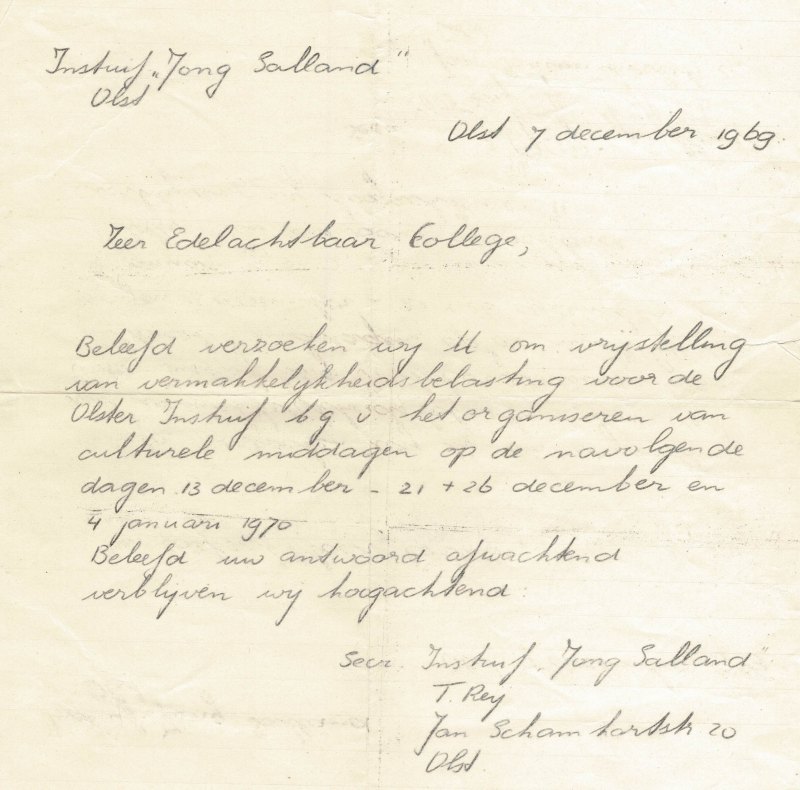 Instuif „Jong Salland"
Olst
Olst 7 december 1969.
Zeer Edelachtbaar College,
Beleefd verzoeken wij U om vrijstelling
van vermakkelijkheidsbelasting voor de
Olster Instuif b g v het organiseren van
culturele middagen op de navolgende
dagen 13 december - 21 + 26 december en
4 januari 1970
Beleefd uw antwoord afwachtend
verblijven wij hoogachtend:
Secr. Instuif „Jong Salland"
T. Rey
Jan Schamhartstr 20
Olst.